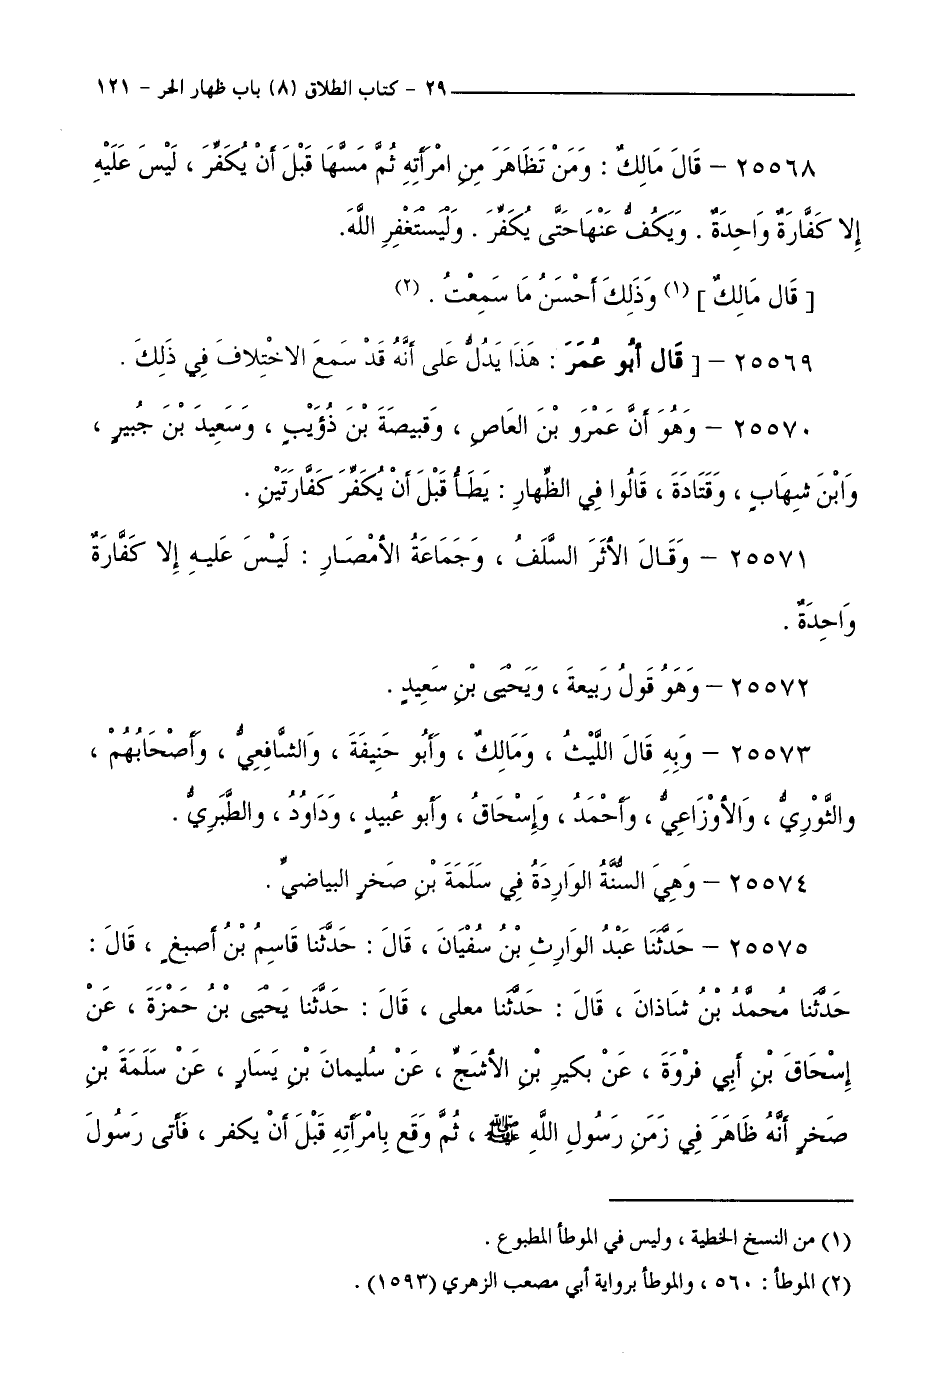 ٢٩ - كتاب الطلاق (٨) باب ظهار الحر - ١٢١
٢٥٥٦٨ - قَالَ مَالِكٌ : وَمَنْ تَظَاهَرَ مِنِ امْرَأَتِهِ ثُمَّ مَسَّهَا قَبْلَ أَنْ يُكَفِّرَ ، لَيْسَ عَلَيْهِ
إِلا كَفَّارَةٌ وَاحِدَةٌ . وَيَكُفُّ عَنْهَاحَتَّى يُكَفِّرَ . وَلْيَسْتَغْفِرِ اللَّهَ.
[ قَال مَالِكٌ ] (١) وَذَلِكَ أَحْسَنُ مَا سَمِعْتُ . (٢)
٢٥٥٦٩ - [ قَال أَبُو عُمَرَ : هَذَا يَدُلُّ عَلى أَنَّهُ قَدْ سَمعَ الاخْتِلافَ فِي ذَلِكَ .
٢٥٥٧٠ - وَهُوَ أَنَّ عَمْرَو بْنَ العَاصِ ، وَقبِيصَةَ بْنَ ذُؤَيْبٍ ، وَسَعِيدَ بْنَ جُبيرٍ ،
وَابْنَ شِهَابٍ ، وَقَتَادَةَ ، قَالُوا فِي الظِّهارِ : يَطَأُ قَبْلَ أَنْ يُكَفِّرَ كَفَّارَتَيْنِ .
٢٥٥٧١ - وَقَـالَ الأَثَرَ السَّلَفُ ، وَجَمَاعَةُ الأَمْصَـارِ : لَيْـسَ عَليـهِ إِلا كَفَّارَةٌ
وَاحِدَةٌ .
٢٥٥٧٢ - وَهَوَ قَولُ رَبيعةَ ، وَيَحْيَى بْنِ سَعِيدٍ .
٢٥٥٧٣ - وَبِهِ قَالَ اللَّيْثُ ، وَمَالِكٌ ، وَأَبُو حَنِيفَةَ ، وَالشَّافِعِيُّ ، وَأَصْحَابُهُمْ ،
والثَّوْرِيُّ ، وَالأوْزَاعِيُّ ، وَأَحْمَدُ ، وَإِسْحَاقُ ، وَأَبو عُبيدٍ ، وَدَاوُدُ ، والطَّبَرِيُّ .
٢٥٥٧٤ - وَهِيَ السُّنَّةُ الوَارِدَةُ فِي سَلَمَةَ بْنِ صَخرٍ البياضيِّ .
٢٥٥٧٥ - حَدَّثَنَا عَبْدُ الوَارِثِ بْنُ سُفْيَانَ ، قَالَ : حَدَّثَنا قَاسِمُ بْنُ أَصبغٍ ، قَالَ :
حَدَّثَنا مُحمَّدُ بْنُ شَاذانَ ، قَالَ : حَدَّثَنا معلى ، قَالَ : حَدَّثَنا يَحْيَى بْنُ حَمْزَةَ ، عَنْ
إِسْحَاقَ بْنِ أَبِي فرْوَةَ ، عَنْ بكيرِ بْنِ الأشَجِّ ، عَنْ سُليمانَ بْنِ يَسَارٍ ، عَنْ سَلَمَةَ بْنِ
صَخرٍ أَنَّهُ ظَاهَرَ فِي زَمَنِ رَسُولِ اللَّهِ ﷺ ، ثُمَّ وَقَع بِامْرَأَتِهِ قَبْلَ أَنْ يكفر ، فَأَتى رَسُولَ
(١) من النسخ الخطية ، وليس في الموطأ المطبوع .
(٢) الموطأ : ٥٦٠ ، والموطأ برواية أبي مصعب الزهري (١٥٩٣) .